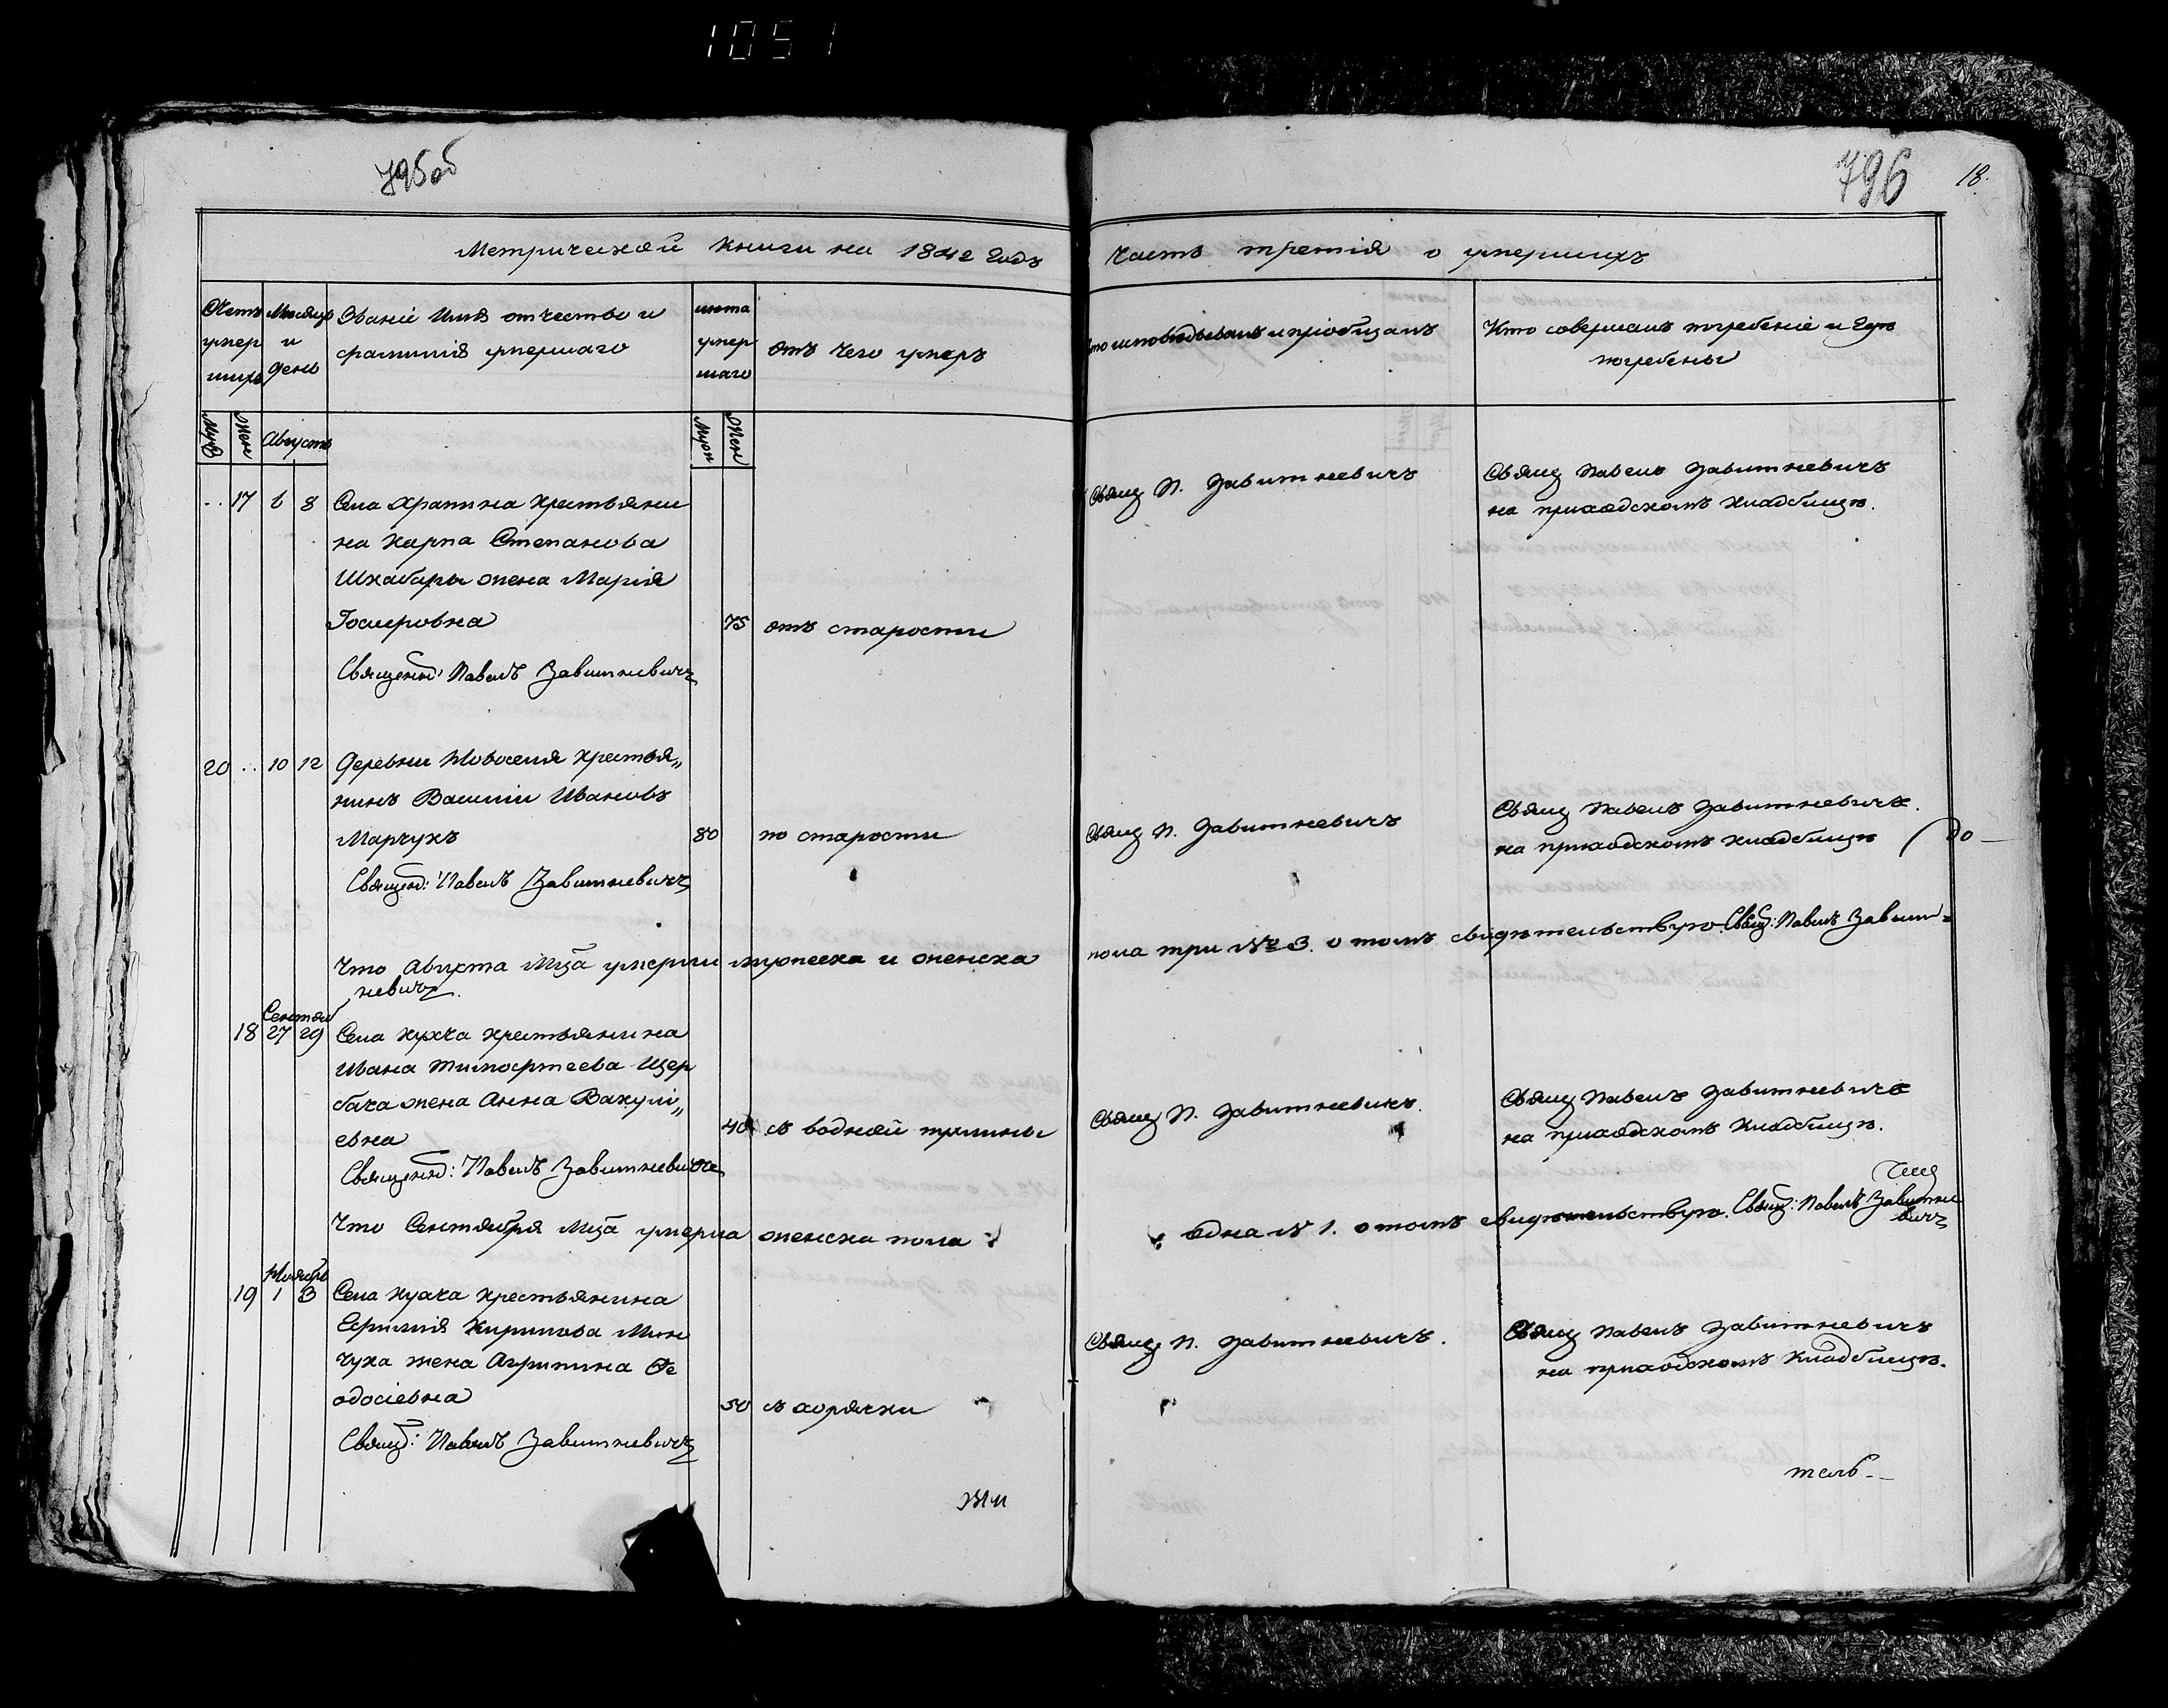 1051
795об
796
18.
Метрической книги на 1842 годъ
Часть третія о умершихъ
Счетъ умершихъ
Мѣсяцъ и день
Званіе имя отчество и фамилія умершаго
лѣта умершаго
отъ чего умеръ
Кто исповѣдывалъ и пріобщалъ
Кто совершалъ погребеніе и гдѣ погребены
Муж
Жен
Августъ
Муж
Жен
.. 17 6 8 Села Храпина крестьяни
на Карпа Степанова
Шкабары жена Марія
75 отъ старости
Священ: Павелъ Завитневичъ
Свящ П. Завитневичъ
Свящ Павелъ Завитневичъ
на приходскомъ кладбищѣ.
20 .. 10 12 Деревни Новоселія крестья„
нинъ Василій Ивановъ
Марчукъ 80 по старости
Священ: Павелъ Завитневичъ
Свящ П. Завитневичъ
Свящ Павелъ Завитневичъ.
на приходскомъ кладбищѣ
до
Что Августа Мца умерли мужеска и женска
пола три № 3. о томъ свидѣтельствую. Свящ: Павелъ Завит=
невичъ.
Сентяб
18 27 29 Села Кухча крестьянина
Ивана Тимофтеева Щер
бача жена Анна Вакулі„
евна 40 съ водной пухлины
Священ: Павелъ Завитневичъ
Свящ П. Завитневичъ.
Свящ Павелъ Завитневичъ
на приходскомъ кладбищѣ.
Что Сентября Мца умерла женска пола
одна № 1. о томъ свидѣтельствую. Свящ: Павелъ Завитне
вичъ
Ноябрь
19 1 3 Села Кухча крестьянина
Ефимія Кирилова Мин
чука жена Агрипина Фе
одосіевна 50 съ горячки
Свящ: Павелъ Завитневичъ
Свящ П. Завитневичъ.
Свящ Павелъ Завитневичъ
на приходскомъ кладбищѣ.